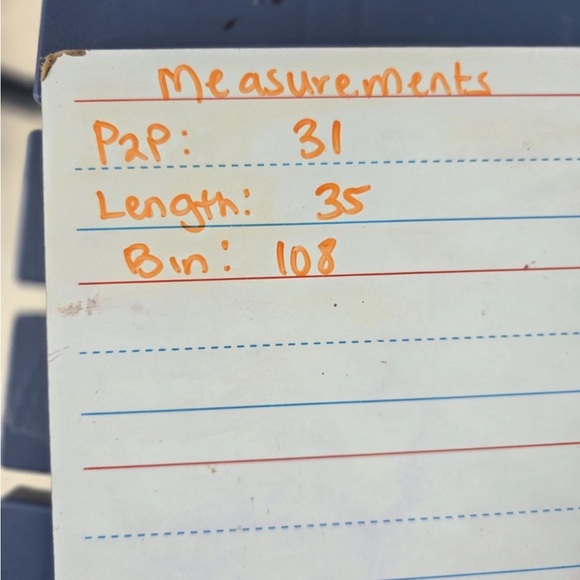 Measurements
P2P: 31
Length: 35
Bin: 108